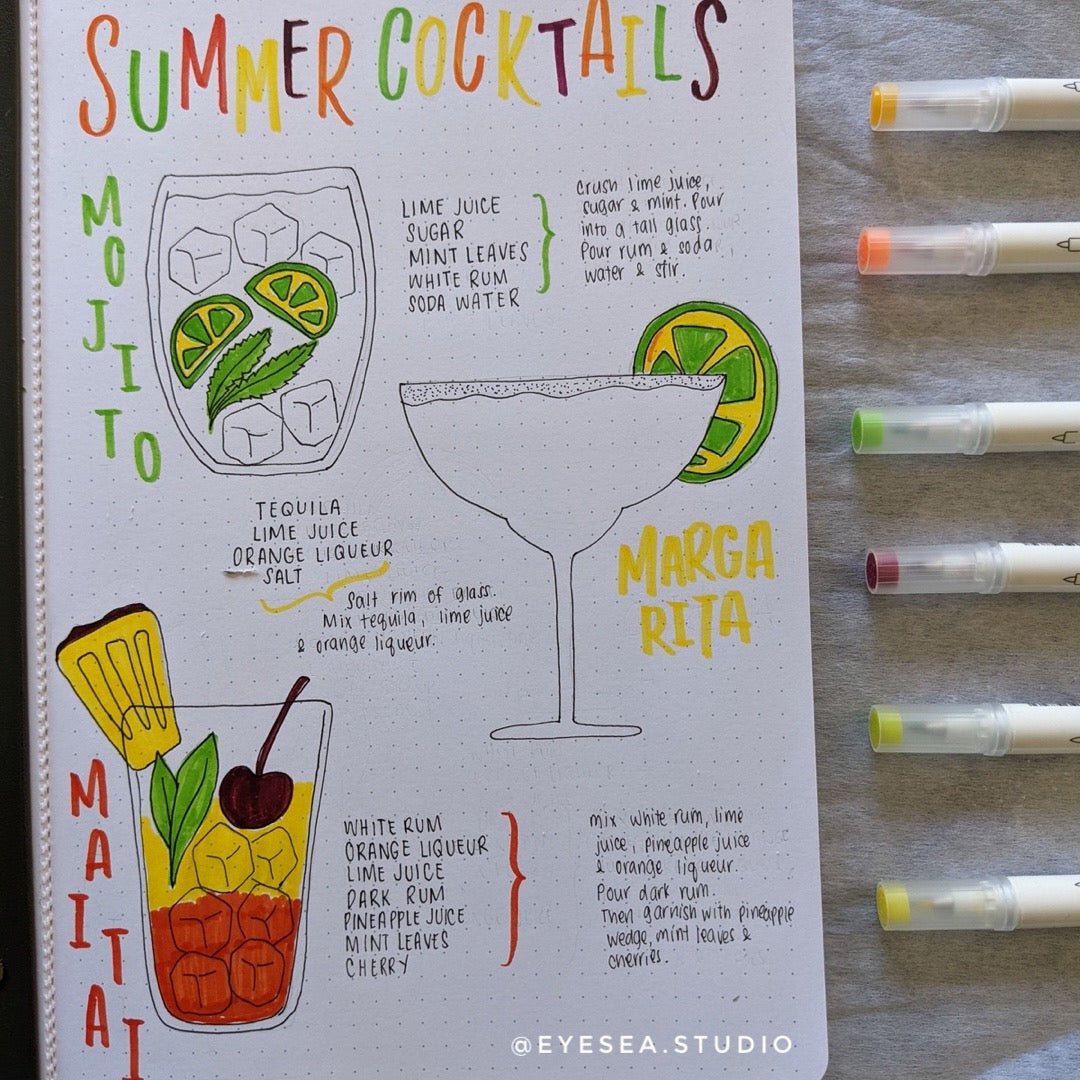 SUMMER COCKTAILS
MOJITO
LIME JUICE
SUGAR
MINT LEAVES
WHITE RUM
SODA WATER
crush lime juice,
sugar & mint. Pour
into a tall glass
Pour rum & soda
water & stir.
TEQUILA
LIME JUICE
ORANGE LIQUEUR
SALT
Salt rim of glass.
Mix tequila, lime juice
& orange liqueur.
MARGA
RITA
MAI TAI
WHITE RUM
ORANGE LIQUEUR
LIME JUICE
DARK RUM
PINEAPPLE JUICE
MINT LEAVES
CHERRY
mix white rum, lime
juice, pineapple juice
& orange liqueur.
Pour dark rum.
Then garnish with pineapple
wedge, mint leaves &
cherries.
@EYESEA.STUDIO